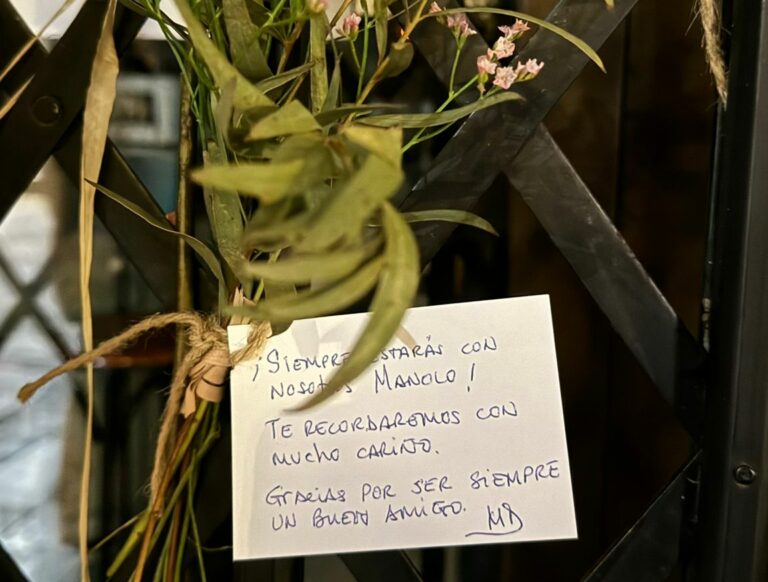 ¡SIEMPRE ESTARÁS CON
NOSOTROS MANOLO!
TE RECORDAREMOS CON
MUCHO CARIÑO.
GRACIAS POR SER SIEMPRE
UN BUEN AMIGO. MD